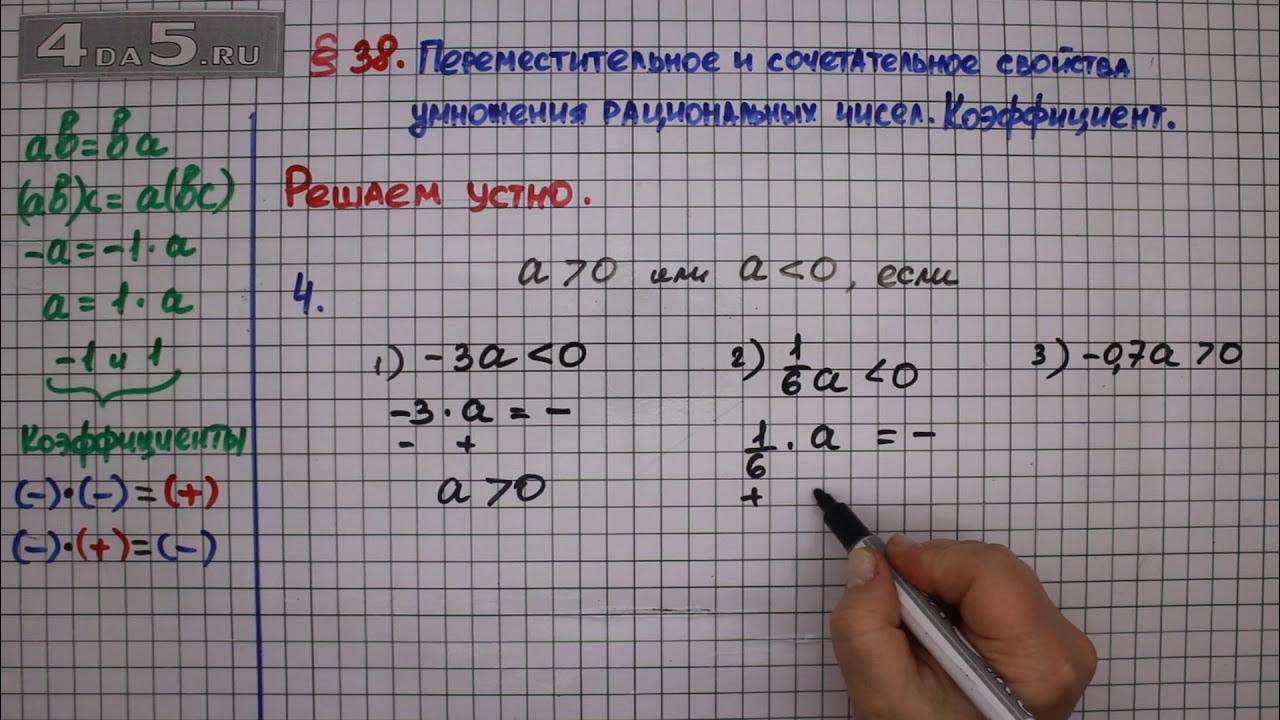 4DA5.RU
§ 38. Переместительное и сочетательное свойства
умножения рациональных чисел. Коэффициент.
ab=ba
(ab)c=a(bc)
-a=-1·a
a=1·a
-1 и 1
Коэффициенты
(-)·(-)=(+)
(-)·(+)=(-)
Решаем устно.
4.
a>0 или a<0, если
1) -3a<0
-3·a=-
- +
a>0
2) 1/6 a<0
1/6 · a =-
+
3) -0,7a>0